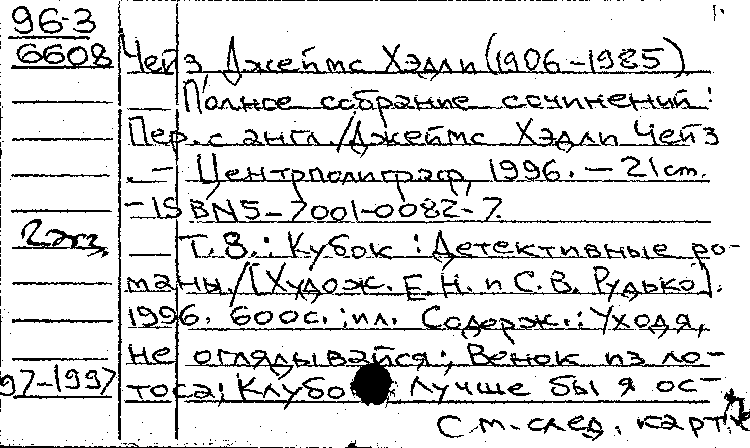 96-3
6608 Чейз, Джеймс Хэдли (1906-1985).
Полное собрание сочинений:
Пер. с англ./Джеймс Хэдли Чейз
. – Центрполиграф, 1996. – 21 см.
– ISBN 5-7001-0082-7.
2 экз. Т. 8.: Кубок : Детективные ро-
маны./[Худож. Е. Н. и С. В. Рудько].
1996. 600с.: ил. Содерж.: Уходя,
не оглядывайся; Венок из ло-
97-1997 тоса; Клубок; Лучше бы я ос-
См. след. карт.